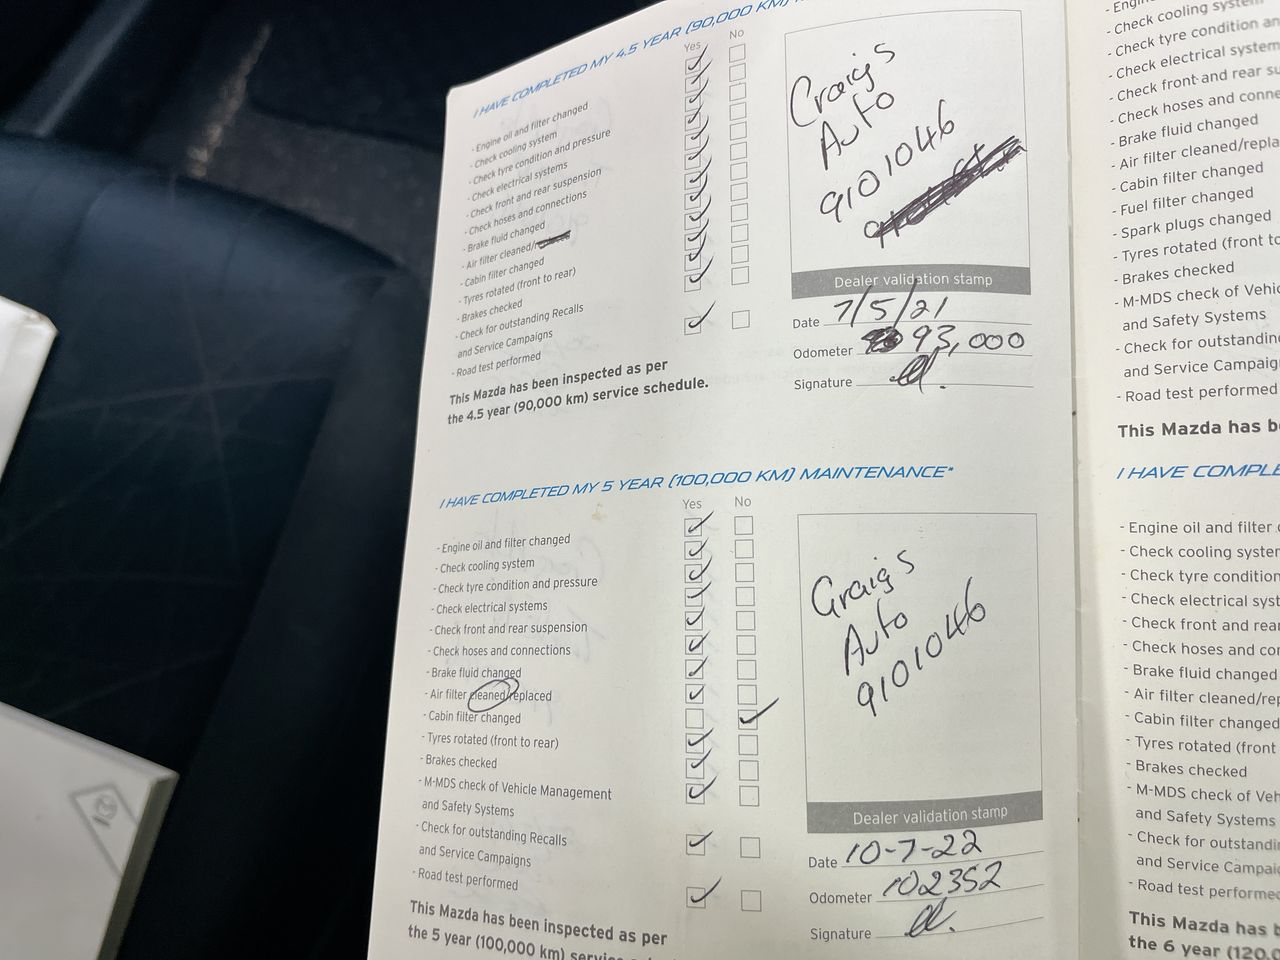 I HAVE COMPLETED MY 4.5 YEAR (90,000 KM)
Yes No
- Engine oil and filter changed
- Check cooling system
- Check tyre condition and pressure
- Check electrical systems
- Check front and rear suspension
- Check hoses and connections
- Brake fluid changed
- Air filter cleaned/replaced
- Cabin filter changed
- Tyres rotated (front to rear)
- Brakes checked
- Check for outstanding Recalls
and Service Campaigns
- Road test performed
This Mazda has been inspected as per
the 4.5 year (90,000 km) service schedule.
Craigs
Auto
9101046
Dealer validation stamp
Date 7/5/21
Odometer 93,000
Signature
I HAVE COMPLETED MY 5 YEAR (100,000 KM) MAINTENANCE*
Yes No
- Engine oil and filter changed
- Check cooling system
- Check tyre condition and pressure
- Check electrical systems
- Check front and rear suspension
- Check hoses and connections
- Brake fluid changed
- Air filter cleaned/replaced
- Cabin filter changed
- Tyres rotated (front to rear)
- Brakes checked
- M-MDS check of Vehicle Management
and Safety Systems
- Check for outstanding Recalls
and Service Campaigns
- Road test performed
This Mazda has been inspected as per
the 5 year (100,000 km)
Craigs
Auto
9101046
Dealer validation stamp
Date 10-7-22
Odometer 102352
Signature
- Check cooling system
- Check tyre condition
- Check electrical system
- Check front and rear
- Check hoses and
- Brake fluid changed
- Air filter cleaned/
- Cabin filter changed
- Fuel filter changed
- Spark plugs changed
- Tyres rotated (front to
- Brakes checked
- M-MDS check of
and Safety Systems
- Check for
and Service
- Road test performed
This Mazda has
I HAVE
- Engine oil and filter
- Check cooling
- Check tyre condition
- Check electrical
- Check front and
- Check hoses and
- Brake fluid changed
- Air filter cleaned/
- Cabin filter changed
- Tyres rotated (front
- Brakes checked
- M-MDS check of
and Safety Systems
- Check for
and Service
- Road test
This Mazda has
the 6 year